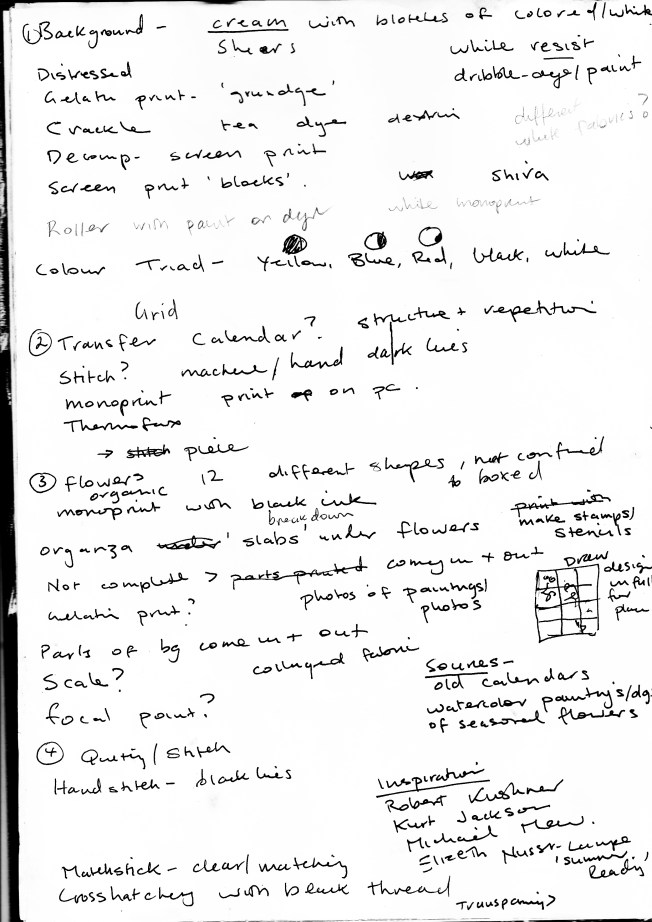 ① Background - cream with blotches of colored/white
Sheers white resist
Distressed dribble-dye/paint
Gelatin print - 'grundge'
Crackle tea dye different white fabrics?
Decomp- screen print
Screen print 'blocks'. shiva
Roller with paint or dye white monoprint
Colour Triad - Yellow, Blue, Red, black, white
Grid
② Transfer Calendar? structure + repetition
Stitch? machine/hand dark lines
monoprint print on pc.
Thermofax
→ stitch piece
③ flowers 12 different shapes, not confined
organic to boxed
monoprint with black ink print with
breakdown make stamps/
organza 'slabs' under flowers stencils
Not complete > parts printed coming in + out Draw
gelatin print? photos of paintings/ design
photos in full
for
Parts of bg come in + out
Scale? collaged fabric
Sources-
old calendars
focal point? watercolor painting's/dg.
of seasonal flowers
④ Quilting/Stitch
Hand stitch - black lines
Inspiration
Robert Kushner
Kurt Jackson
Michael Mew.
Elizbeth Nusser-Lampe
'Summer
Matchstick - clear/matching Ready'
Crosshatching with black thread
Transparency